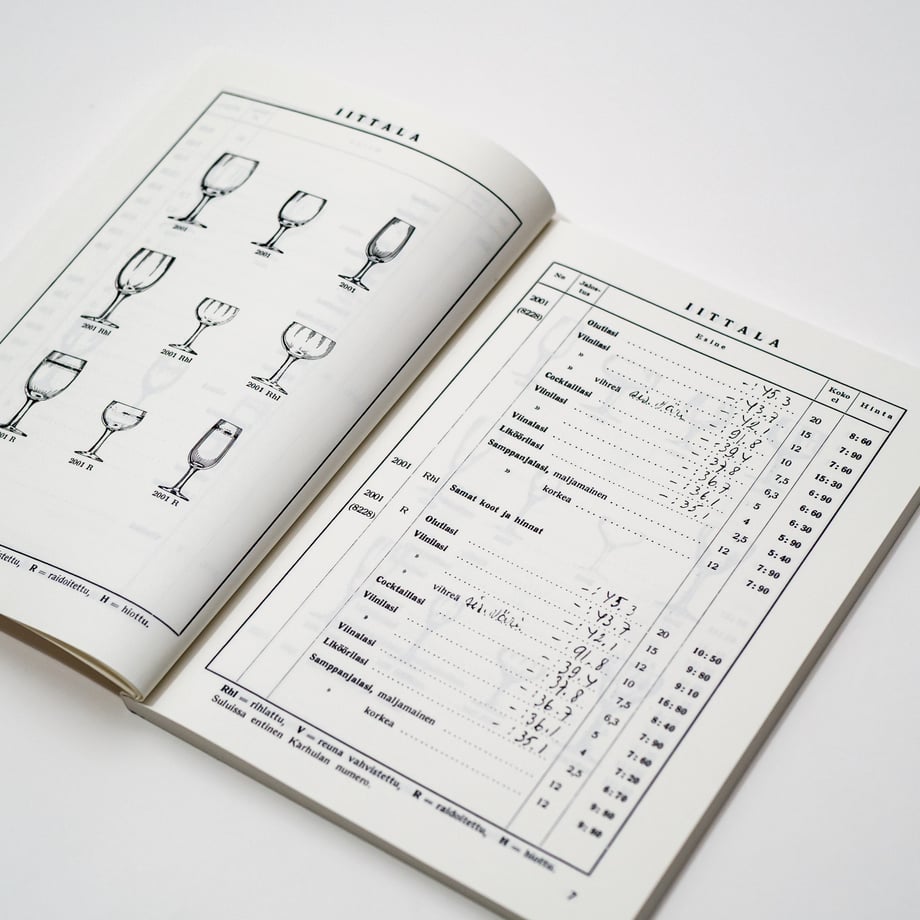 IITTALA
2001
2001
2001
2001 Rhl
2001 Rhl
2001 Rhl
R
2001 R
2001 R
R = raidoitettu, H = hiottu.
IITTALA
No Jalos-tus Esine Koko cl Hinta
2001 (8228) Olutlasi 45.3 20 8: 60
Viinilasi 43.7 15 7: 90
» 42.1 12 7: 60
» vihreä 91.8 10 15: 30
Cocktaillasi 39.4 7,5 6: 90
Viinilasi 37.8 6,3 6: 60
» 36.7 5 6: 30
Viinalasi 36.1 4 5: 90
Likööri­lasi 35.1 2,5 5: 40
Samppanjalasi, maljamainen 12 7: 90
» korkea 12 7: 90
2001 Rhl Samat koot ja hinnat
2001 (8228) R Olutlasi 45.3 20 10: 50
Viinilasi 43.7 15 9: 80
» 42.1 12 9: 10
» vihreä 91.8 10 16: 80
Cocktaillasi 39.4 7,5 8: 40
Viinilasi 37.8 6,3 7: 90
» 36.7 5 7: 60
Viinalasi 36.1 4 7: 20
Liköörilasi 35.1 2,5 6: 70
Samppanjalasi, maljamainen 12
» korkea 12
Rhl = rihlattu, V = reuna vahvistettu, R = raidoitettu, H = hiottu.
Suluissa entinen Karhulan numero.
7